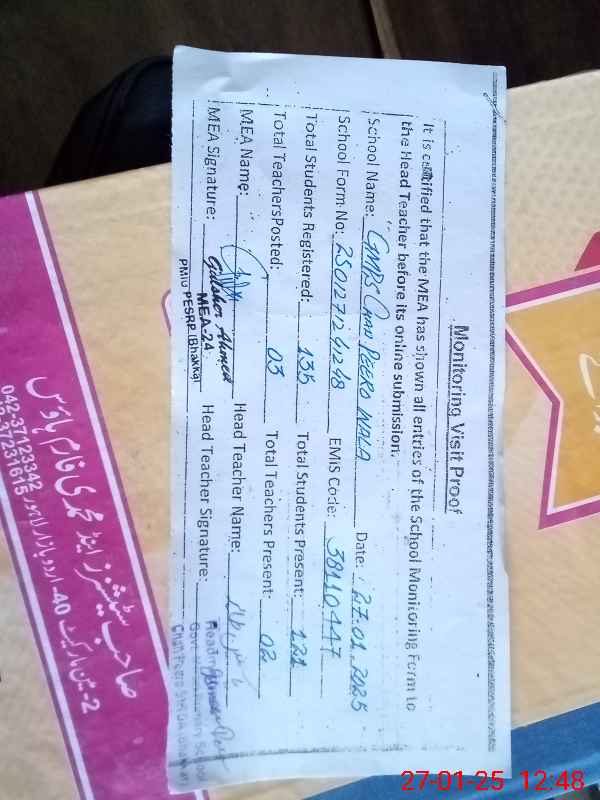 Monitoring Visit Proof
It is certified that the MEA has shown all entries of the School Monitoring Form to
the Head Teacher before its online submission.
School Name: GMPS Chan PEERO WALA Date: 27.01.2025
School Form No: 25012724248 EMIS Code: 38110447
Total Students Registered: 135 Total Students Present: 121
Total TeachersPosted: 03 Total Teachers Present: 02
MEA Name: Head Teacher Name:
Gulsher Ahmed
MEA Signature: MEA-24 Head Teacher Signature:
PMIU PESRP (Bhakkar)
صاحب سٹیشنرز اینڈ محمدی فارم ہاؤس
2- میاں مارکیٹ 40- اردو بازار لاہور
042-37123342
37231615
27-01-25 12:48